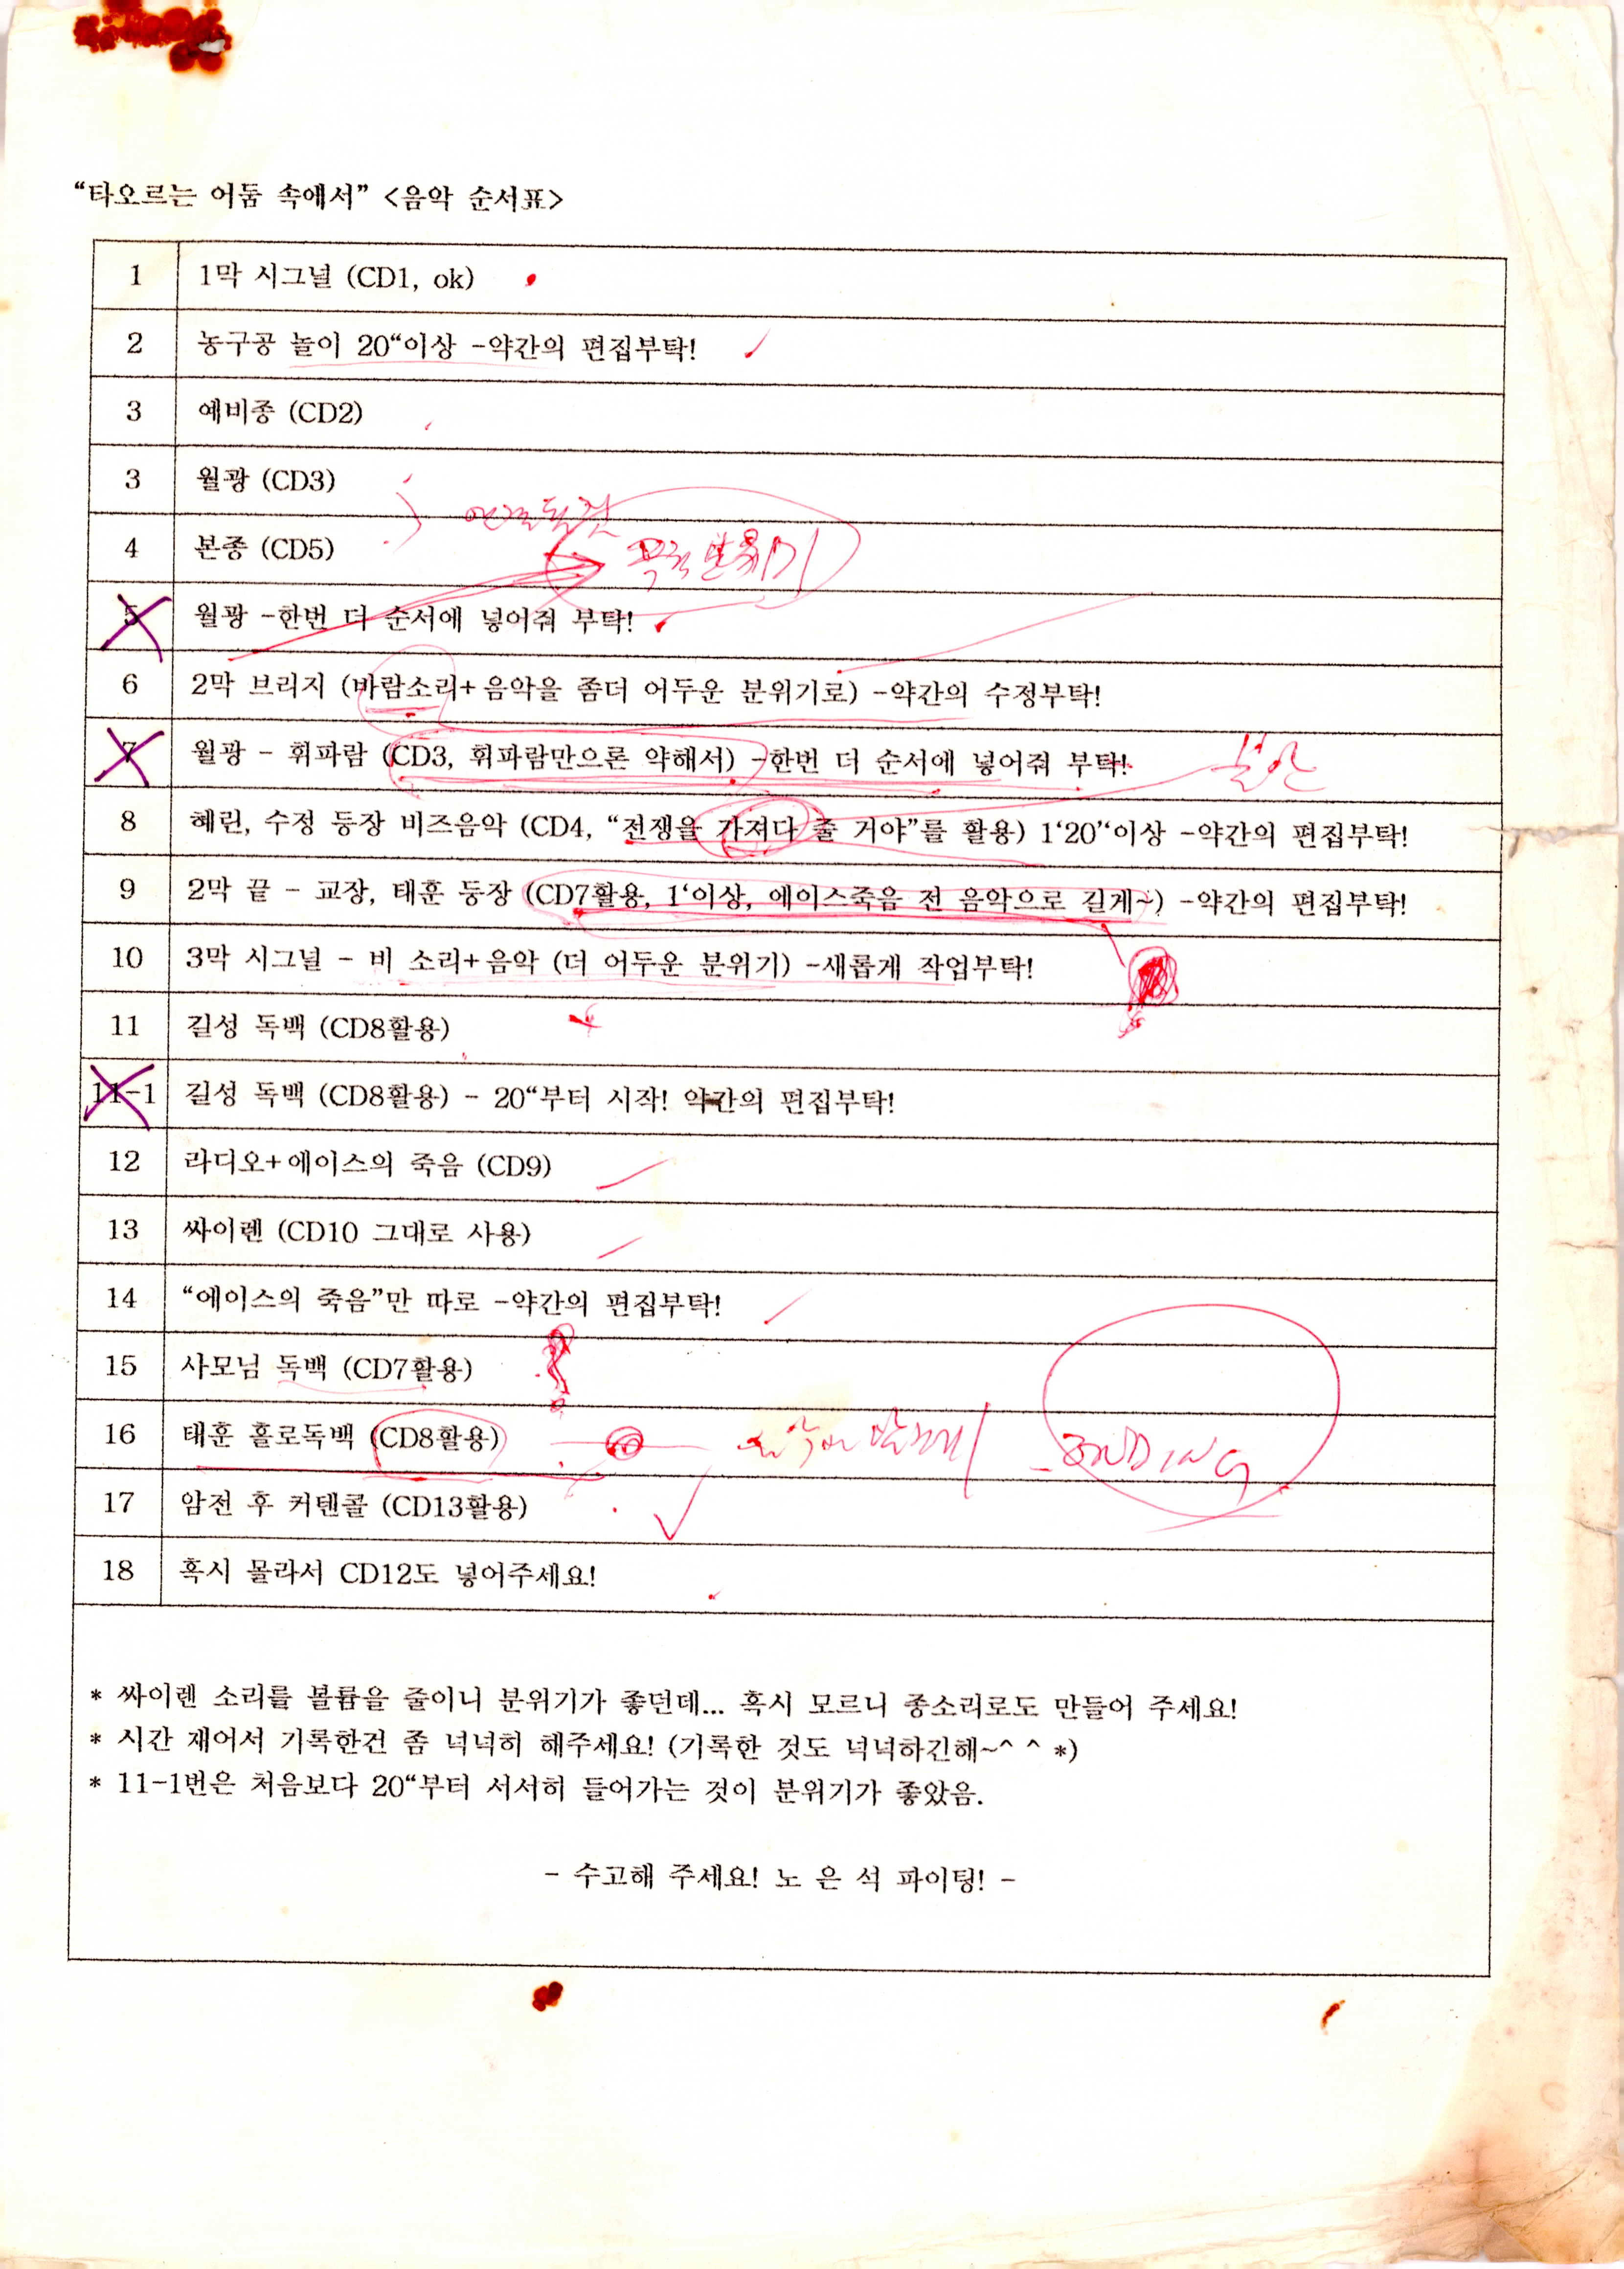 “타오르는 어둠 속에서” <음악 순서표>
1 1막 시그널 (CD1, ok)
2 농구공 놀이 20“이상 -약간의 편집부탁!
3 예비종 (CD2)
3 월광 (CD3)
4 본종 (CD5)
분위기
5 월광 -한번 더 순서에 넣어줘 부탁!
6 2막 브리지 (바람소리+음악을 좀더 어두운 분위기로) -약간의 수정부탁!
7 월광 - 휘파람 (CD3, 휘파람만으론 약해서) -한번 더 순서에 넣어줘 부탁!
불안
8 혜린, 수정 등장 비즈음악 (CD4, “전쟁을 가져다 줄 거야”를 활용) 1‘20”‘이상 -약간의 편집부탁!
9 2막 끝 - 교장, 태훈 등장 (CD7활용, 1‘이상, 에이스죽음 전 음악으로 길게~) -약간의 편집부탁!
10 3막 시그널 - 비 소리+음악 (더 어두운 분위기) -새롭게 작업부탁!
11 길성 독백 (CD8활용)
11-1 길성 독백 (CD8활용) - 20“부터 시작! 약간의 편집부탁!
12 라디오+에이스의 죽음 (CD9)
13 싸이렌 (CD10 그대로 사용)
14 “에이스의 죽음”만 따로 -약간의 편집부탁!
15 사모님 독백 (CD7활용)
16 태훈 홀로독백 (CD8활용)
ENDING
17 암전 후 커텐콜 (CD13활용)
18 혹시 몰라서 CD12도 넣어주세요!
* 싸이렌 소리를 볼륨을 줄이니 분위기가 좋던데... 혹시 모르니 종소리로도 만들어 주세요!
* 시간 재어서 기록한건 좀 넉넉히 해주세요! (기록한 것도 넉넉하긴해~^ ^ *)
* 11-1번은 처음보다 20“부터 서서히 들어가는 것이 분위기가 좋았음.
- 수고해 주세요! 노 은 석 파이팅! -